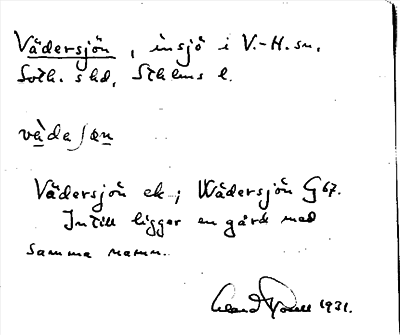 Vädersjön, insjö i V.-H. sn,
Soth. shd, Sthlms l.
vädasꞷn
Vädersjön ek; Wädersjön G 67.
Intill ligger en gård med
samma namn.
1931.